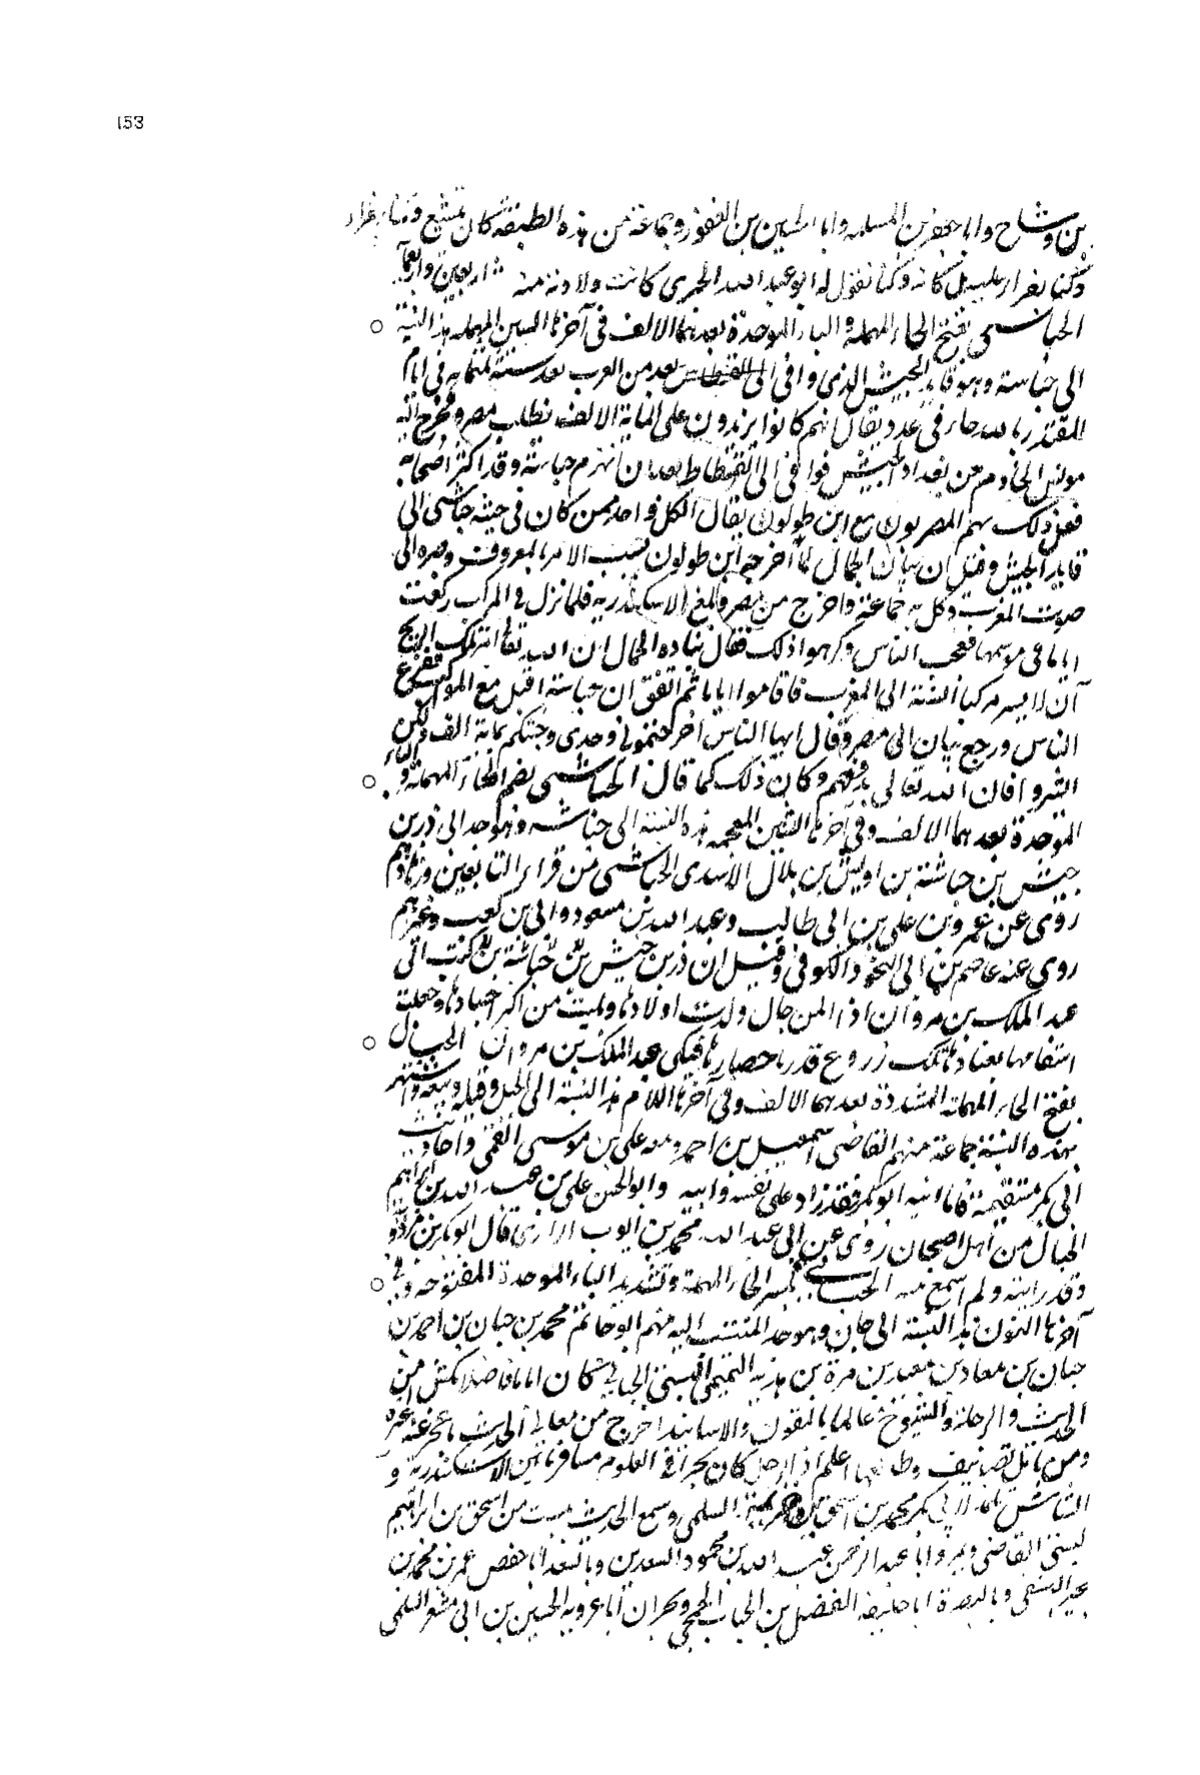 153
بن وشاح وابا جعفر بن المسلمه وابا الحسين بن النقور وجماعة من هذه الطبقة كان يتشيع
وكنا نقول له ابو عبد الله الحبرى كانت ولادته منه اربعين واربعمايه
الحباسى بفتح الحاء المهملة والباء الموحدة بعدهما الالف فى آخرها السين المهملة هذه النسبة
الى حباسة وهو قايد الجيش الذى وافى الى الفسطاط بعد من الغرب بعد سنة ثلثمايه فى ايام
المقتدر بالله جاء فى عدد يقال انهم كانوا يزيدون على الماية الالف بطلب مصر وخرج اليه
مونس الخادم من بغداد الجيش فوافى الى الفسطاط بعد ان انهزم حباسة وقد اكثر اصحابه
فعند ذلك المصريون مع ابن طولون يقال لكل واحد ممن كان فى جيشه حباسى الى
قايد الجيش وقيل ان بنان الجمال لما اخرجه ابن طولون بسبب الامر بالمعروف وسيره الى
صوب المغرب وكل به جماعة واخرج من مصر وبلغ الاسكندرية فلما نزل فى المراكب
اياما فى موسمها فعجب الناس وكرهوا ذلك فقال بنان الحمال ان الله تعالى الريح
ان لا يسير مركبا السنة الى المغرب فاقاموا اياما ثم اتفق ان حباسة اقبل مع المراكب
الناس ورجع بنان الى مصر وقال ايها الناس اخرجتمونى وحدى وجئتكم بماية الف ولكن
ابشروا فان الله تعالى يدفعهم وكان ذلك كما قال الحباشى بضم الحاء المهملة والباء
الموحدة بعدهما الالف وفى آخرها الشين المعجمه هذه النسبة الى حباشه وهو جد الى زر بن
حبيش بن حباشة بن اوس بن بلال الاسدى الحباشى من قراء التابعين
روى عن عمر وبن على بن ابى طالب وعبد الله بن مسعود وابى بن كعب وغيرهم
روى عنه عاصم بن ابى النجود الكوفى وقيل ان زر بن حبيش بن حباشة بن كتب الى
عبد الملك بن مروان اذا الرجال ولدت اولادها وبليت من اجسادها وجعلت
اسقامها تعتادها تلك زروع قد دنا حصادها فبكى عبد الملك بن مروان الحبال
بفتح الحاء المهملة المشددة بعدهما الالف وفى آخرها اللام هذه النسبة الى الحبل وفتله وبيعه واشتهر
بهذه النسبة جماعة منهم القاضى اسمعيل بن احمد على بن موسى القمى واحاديث
ابى بكر مستقيمة فاما ابنه ابو بكر فقد زاد على نفسه وابيه وابو الحسن على بن عبد الله بن ابراهيم
الحبال من اهل اصبهان روى عن ابى عبد الله محمد بن ايوب الرازى قال ابو بكر بن مردويه
وقد رايته ولم اسمع منه الحبانى بكسر الحاء المهملة وتشديد الباء الموحدة المفتوحه وفى
آخرها النون هذه النسبة الى حبان وهو جد المنتسب اليه منهم ابو حاتم محمد بن حبان بن احمد بن
حبان بن معاذ بن معبد بن مرة بن هدية التميمى البستى الحبانى كان اماما فاضلا مكثرا من
الحديث والرحلة والشيوخ عالما بالمتون والاسانيد اخرج من معانى الحديث ما عجز عنه غيره
ومن تامل تصانيفه وطالعها علم ان الرجل كان بحرا فى العلوم سافر ما بين الاسكندرية و
الشاش تلمذ لابى بكر محمد بن اسحق بن خزيمة السلمى وسمع الحديث ببست من اسحق بن ابراهيم
لبستى القاضى وبمرو ابا عبد الرحمن عبد الله بن محمود السعدى وبالسغد ابا حفص عمر بن محمد بن
بجير السغدى وبالبصرة ابا خليفه الفضل بن الحباب الجمحى وبحران ابا عروبه الحسين بن ابى معشر السلمى